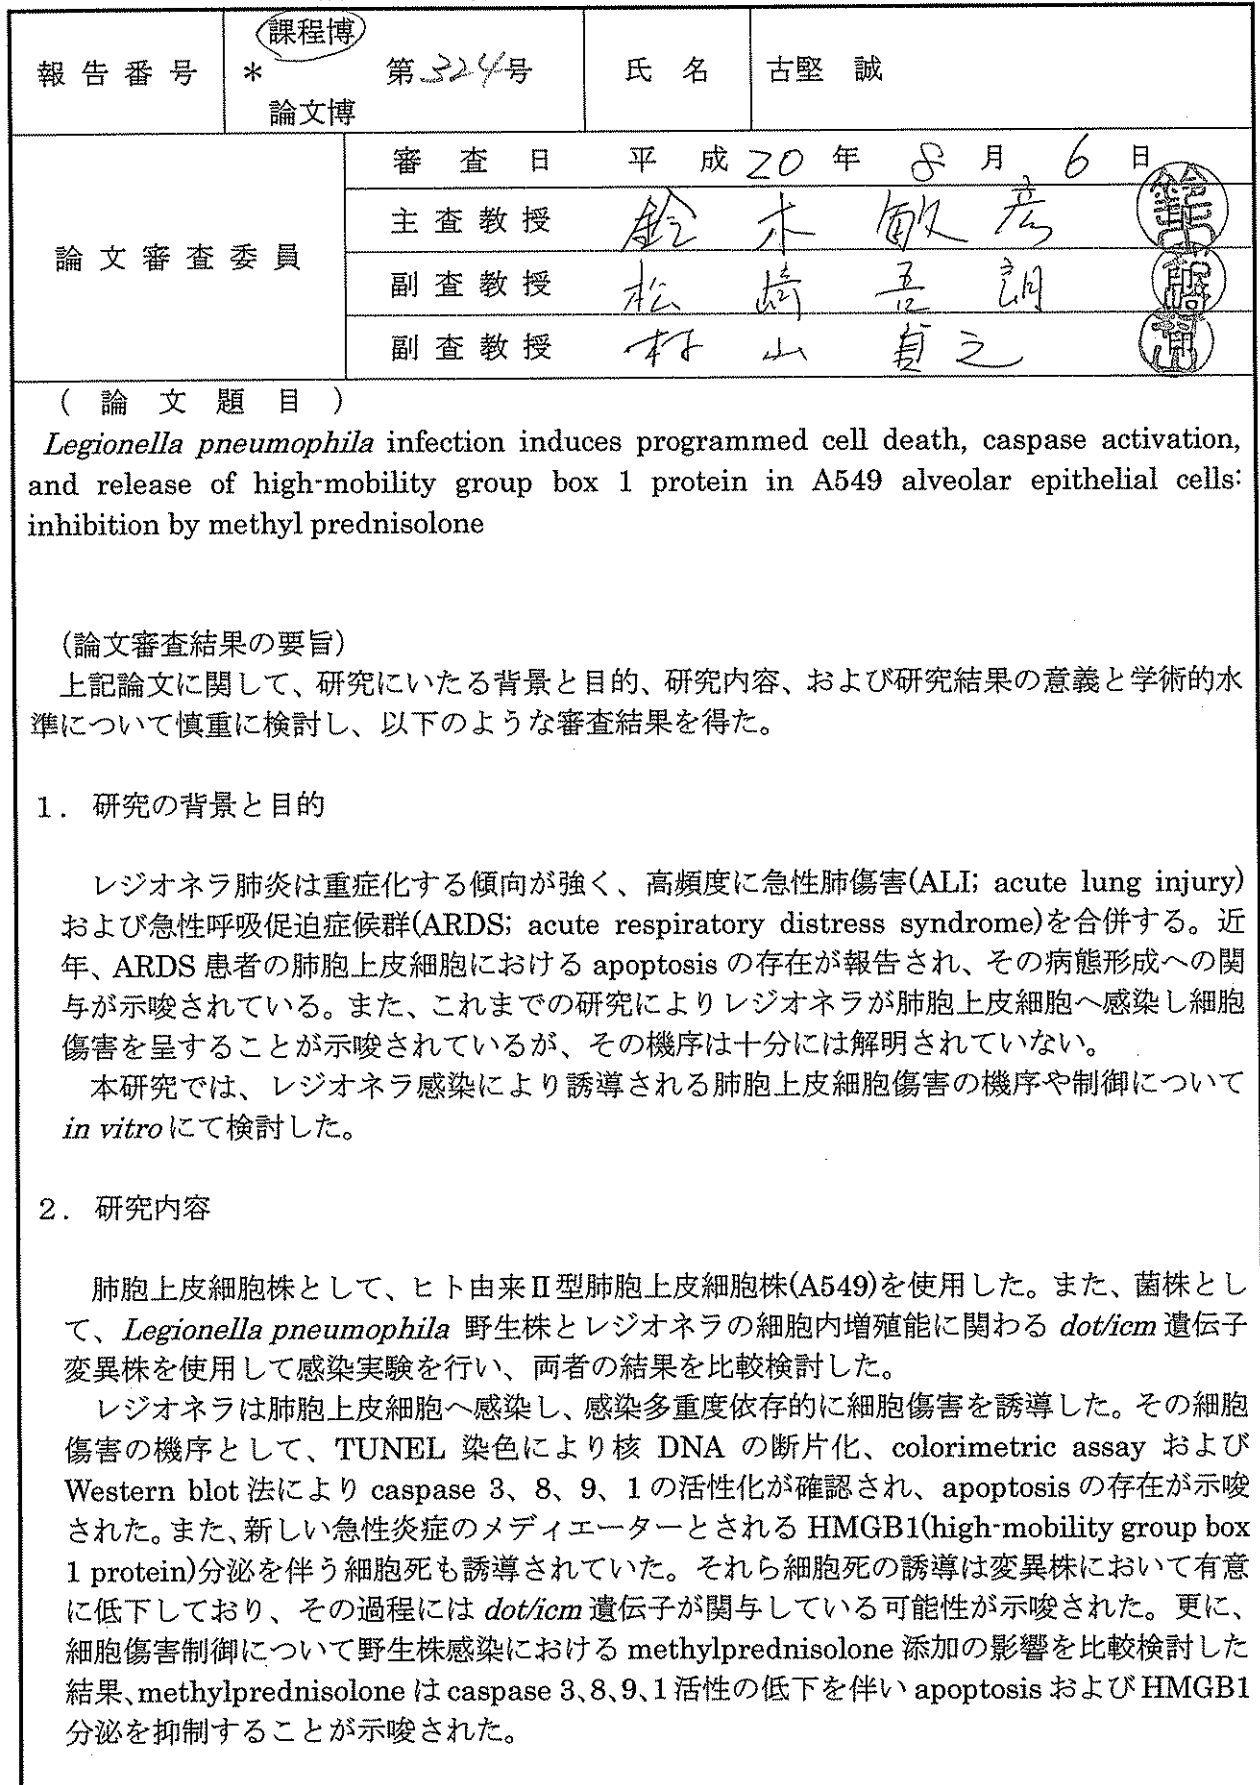 課程博
報告番号 * 第324号 氏名 古堅 誠
論文博
審査日 平成20年8月6日
主査教授 鈴木敏彦
論文審査委員
副査教授 松崎吾朗
副査教授 村山貞之
(論文題目)
Legionella pneumophila infection induces programmed cell death, caspase activation,
and release of high-mobility group box 1 protein in A549 alveolar epithelial cells:
inhibition by methyl prednisolone
(論文審査結果の要旨)
上記論文に関して、研究にいたる背景と目的、研究内容、および研究結果の意義と学術的水
準について慎重に検討し、以下のような審査結果を得た。
1. 研究の背景と目的
レジオネラ肺炎は重症化する傾向が強く、高頻度に急性肺傷害(ALI; acute lung injury)
および急性呼吸促迫症候群(ARDS; acute respiratory distress syndrome)を合併する。近
年、ARDS 患者の肺胞上皮細胞における apoptosis の存在が報告され、その病態形成への関
与が示唆されている。また、これまでの研究によりレジオネラが肺胞上皮細胞へ感染し細胞
傷害を呈することが示唆されているが、その機序は十分には解明されていない。
本研究では、レジオネラ感染により誘導される肺胞上皮細胞傷害の機序や制御について
in vitro にて検討した。
2. 研究内容
肺胞上皮細胞株として、ヒト由来Ⅱ型肺胞上皮細胞株(A549)を使用した。また、菌株とし
て、Legionella pneumophila 野生株とレジオネラの細胞内増殖能に関わる dot/icm 遺伝子
変異株を使用して感染実験を行い、両者の結果を比較検討した。
レジオネラは肺胞上皮細胞へ感染し、感染多重度依存的に細胞傷害を誘導した。その細胞
傷害の機序として、TUNEL 染色により核 DNA の断片化、colorimetric assay および
Western blot 法により caspase 3、8、9、1 の活性化が確認され、apoptosis の存在が示唆
された。また、新しい急性炎症のメディエーターとされる HMGB1(high-mobility group box
1 protein)分泌を伴う細胞死も誘導されていた。それら細胞死の誘導は変異株において有意
に低下しており、その過程には dot/icm 遺伝子が関与している可能性が示唆された。更に、
細胞傷害制御について野生株感染における methylprednisolone 添加の影響を比較検討した
結果、methylprednisolone は caspase 3、8、9、1 活性の低下を伴い apoptosis および HMGB1
分泌を抑制することが示唆された。